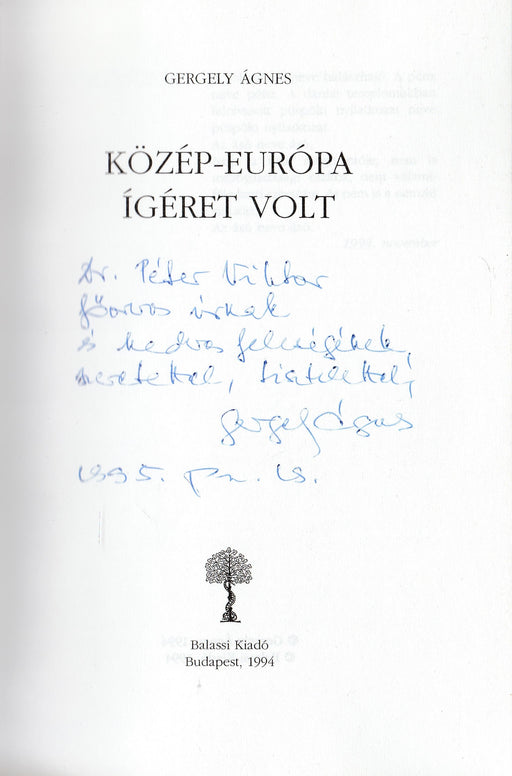 GERGELY ÁGNES
KÖZÉP-EURÓPA
ÍGÉRET VOLT
Dr. Péter Viktor
főorvos úrnak
és kedves feleségének,
szeretettel, tisztelettel,
Gergely Ágnes
1995.
Balassi Kiadó
Budapest, 1994